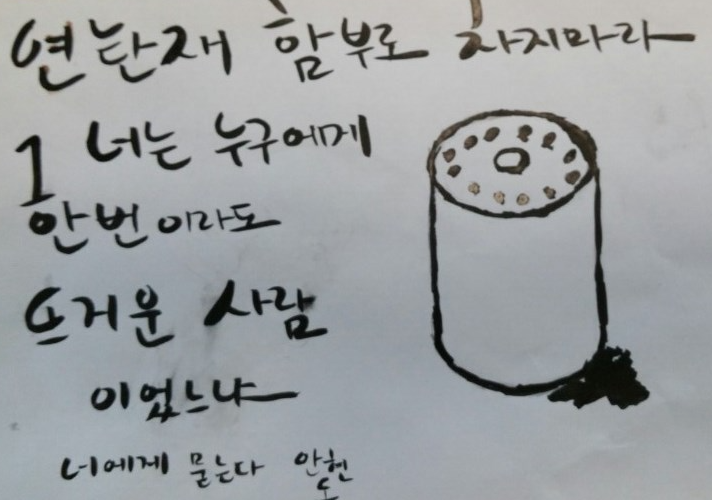 연탄재 함부로 차지마라
너는 누구에게
한번이라도
뜨거운 사람
이었느냐
너에게 묻는다 안현도